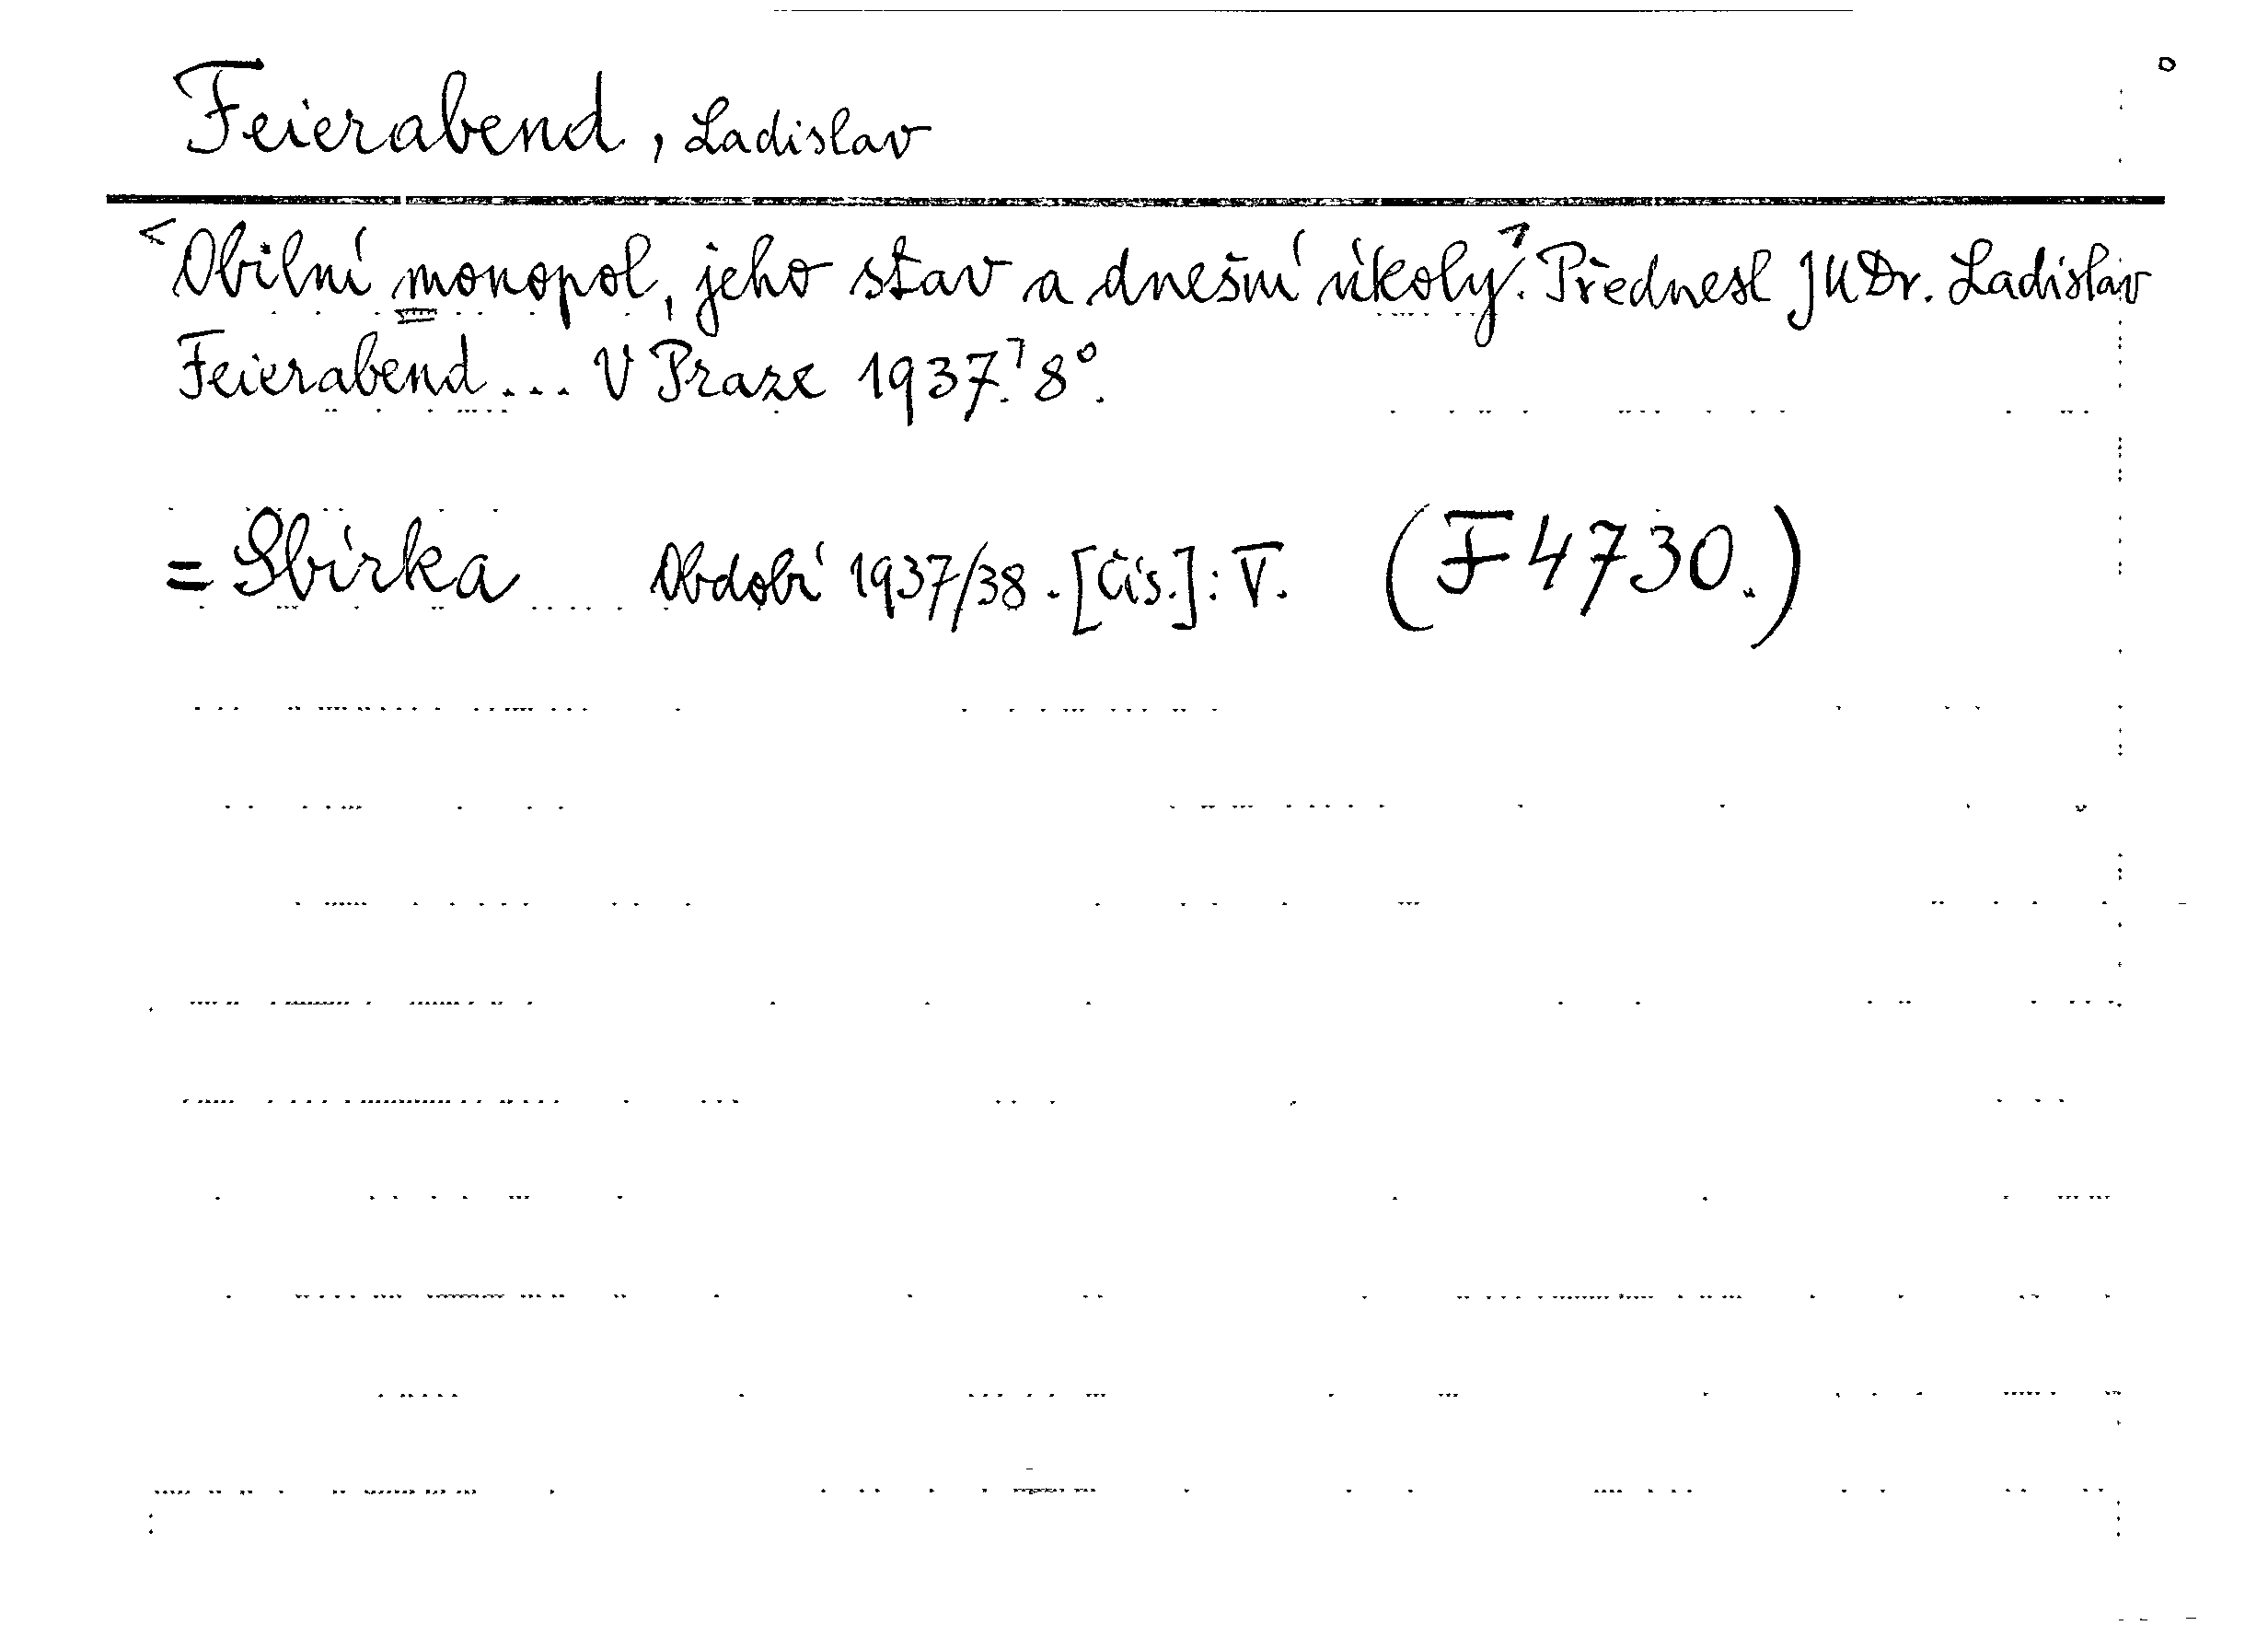 Feierabend, Ladislav
<Obilní monopol, jeho stav a dnešní úkoly.> Přednesl JUDr. Ladislav
Feierabend... V Praze 1937.⁷ 8°.
= Sbírka Období 1937/38. [Čís.]: V. (F 4730.)